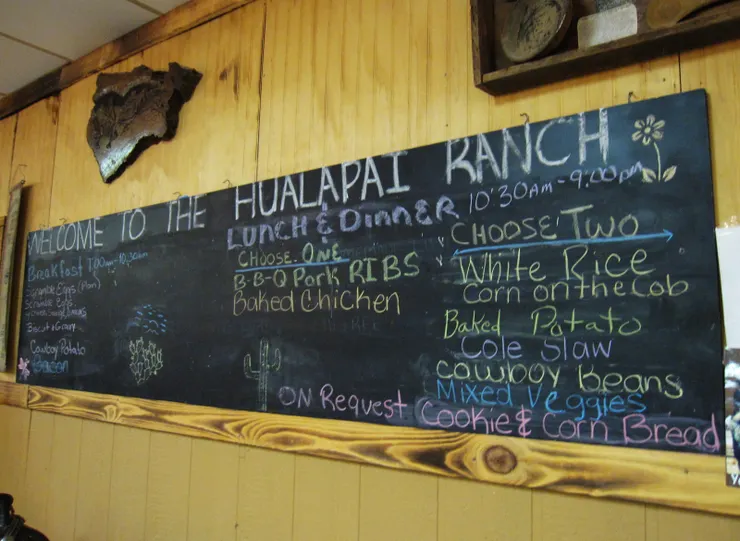 WELCOME TO THE HUALAPAI RANCH
Breakfast 7:00am-10:30am
Scramble Eggs (Plain)
Scramble Eggs
Biscut & Gravy
Cowboy Potato
LUNCH & DinnER 10:30Am-9:00pm
CHOOSE ONE
B-B-Q Pork RIBS
Baked Chicken
CHOOSE TWO
White Rice
Corn on the Cob
Baked Potato
Cole Slaw
Cowboy Beans
Mixed Veggies
ON Request Cookie & Corn Bread